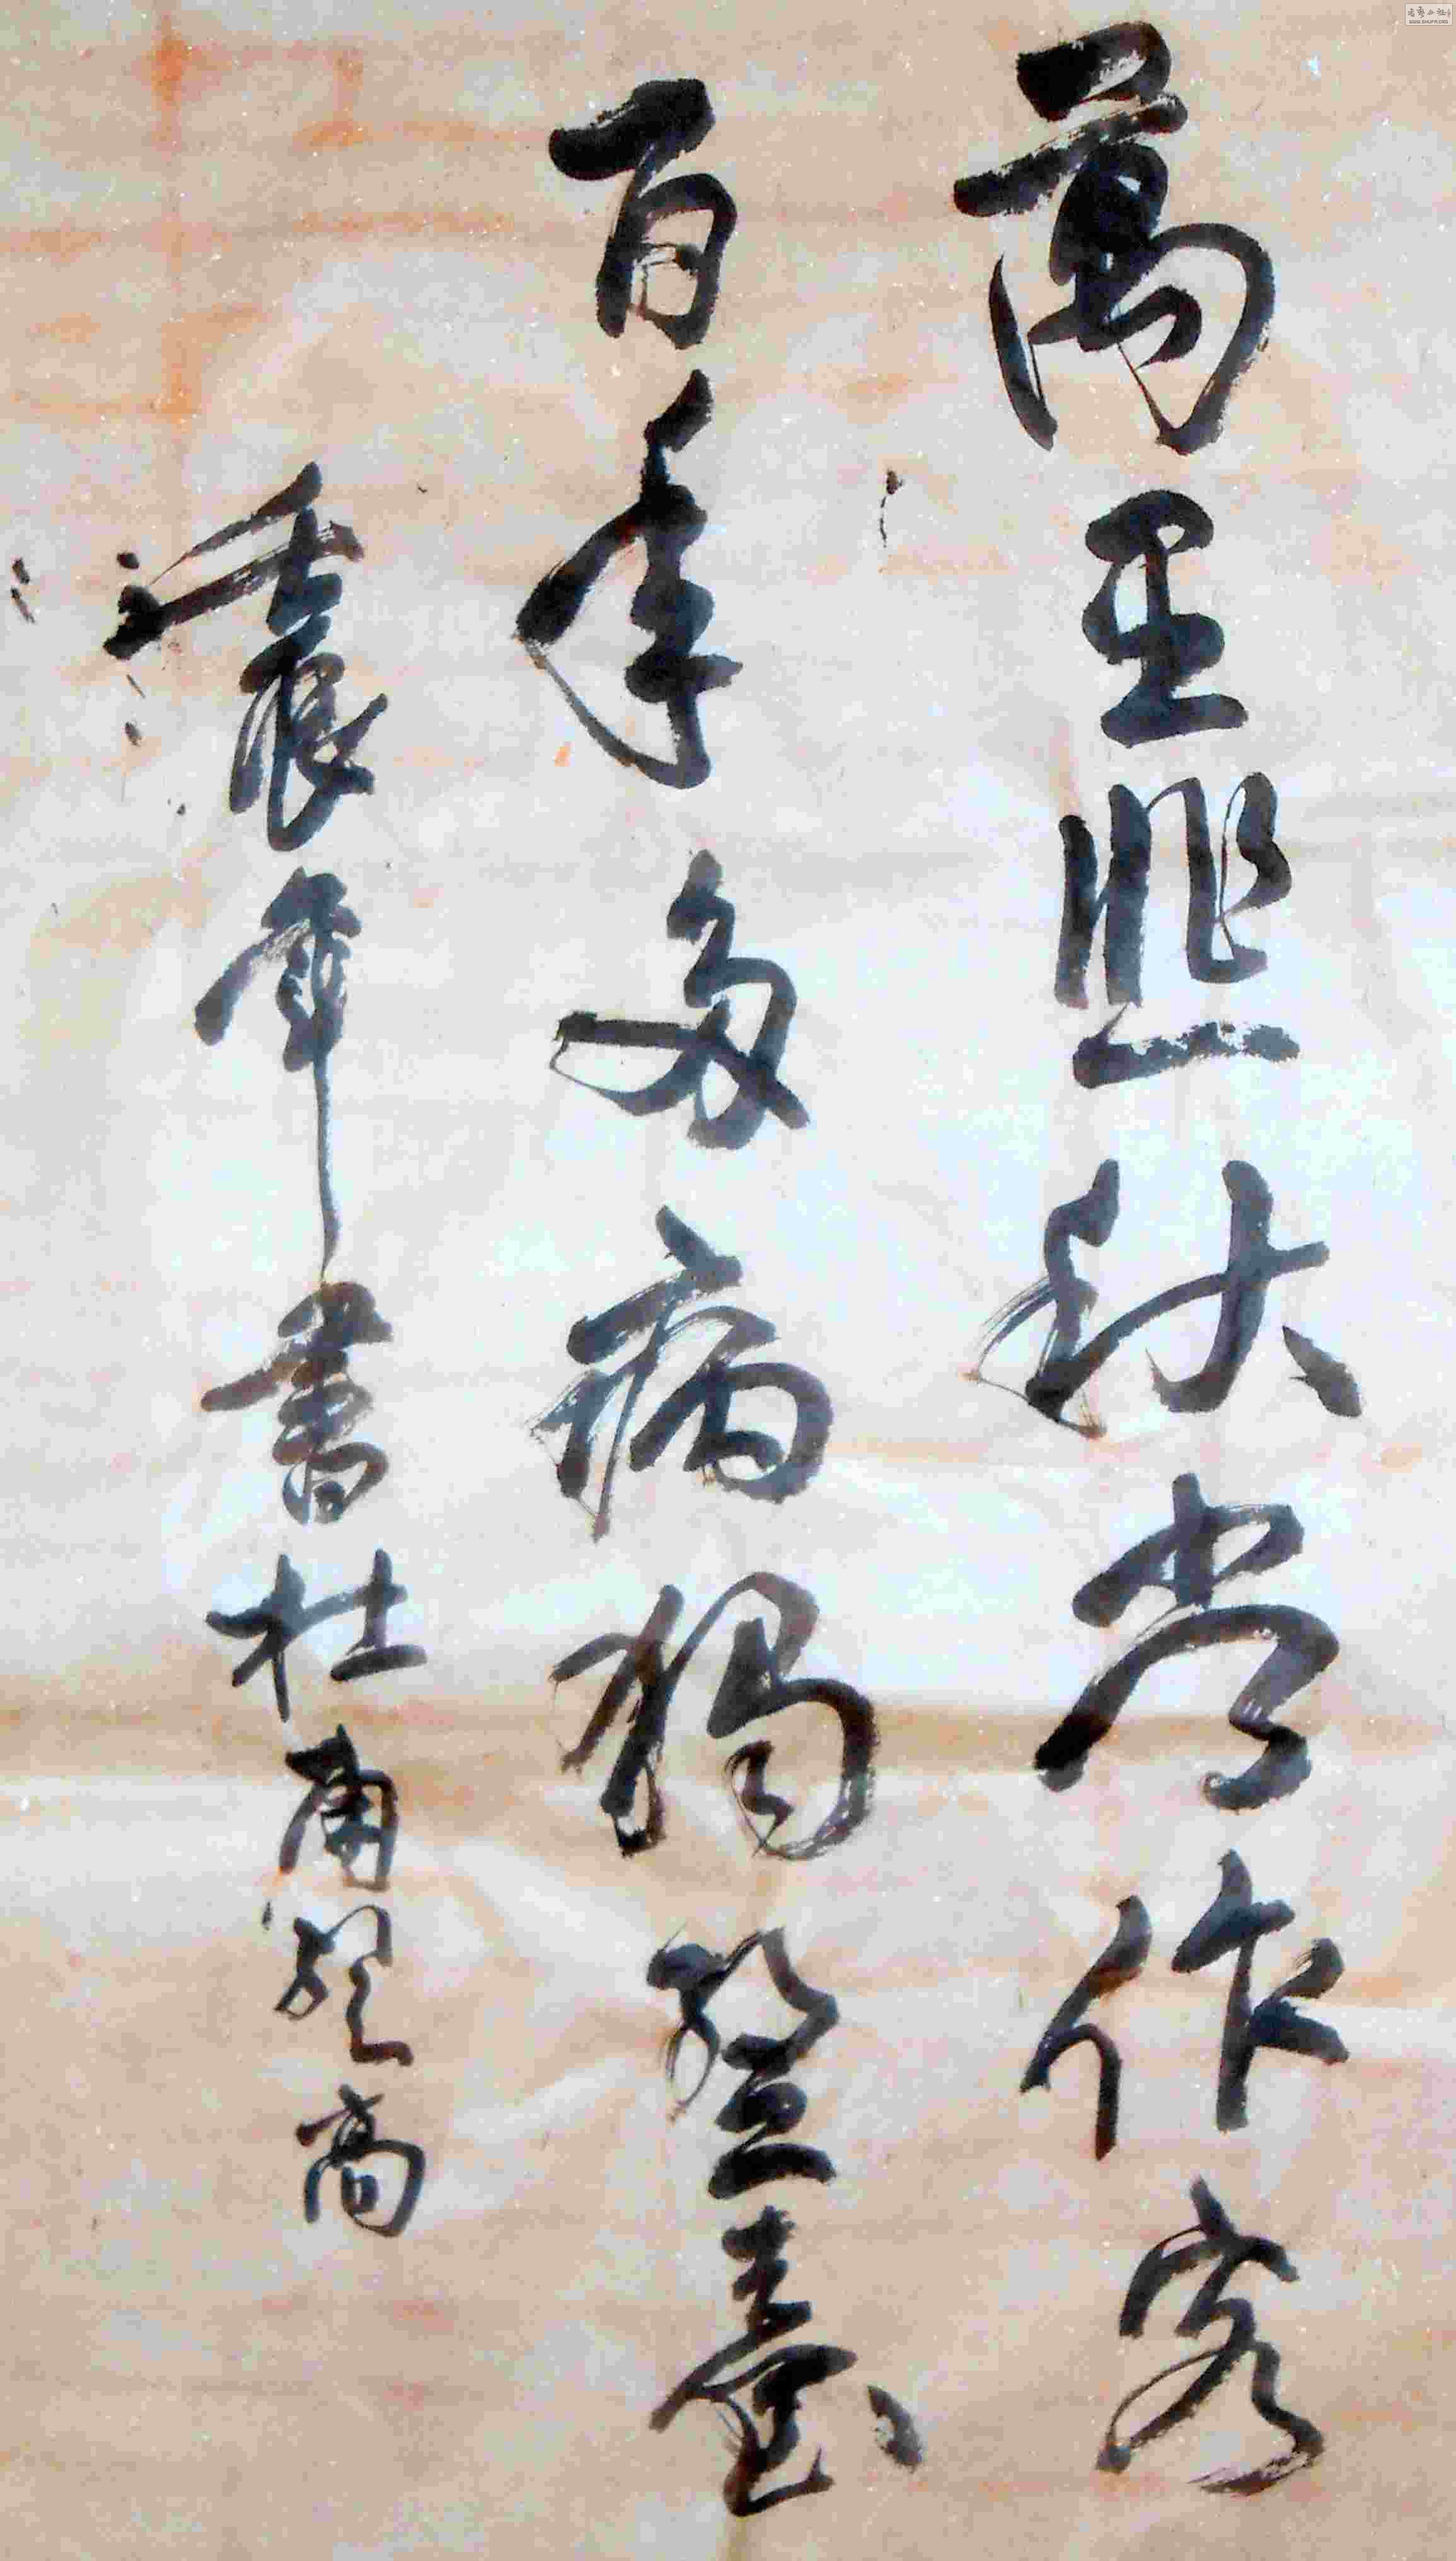 萬里悲秋常作客
百年多病獨登臺
壬辰年書杜甫登高